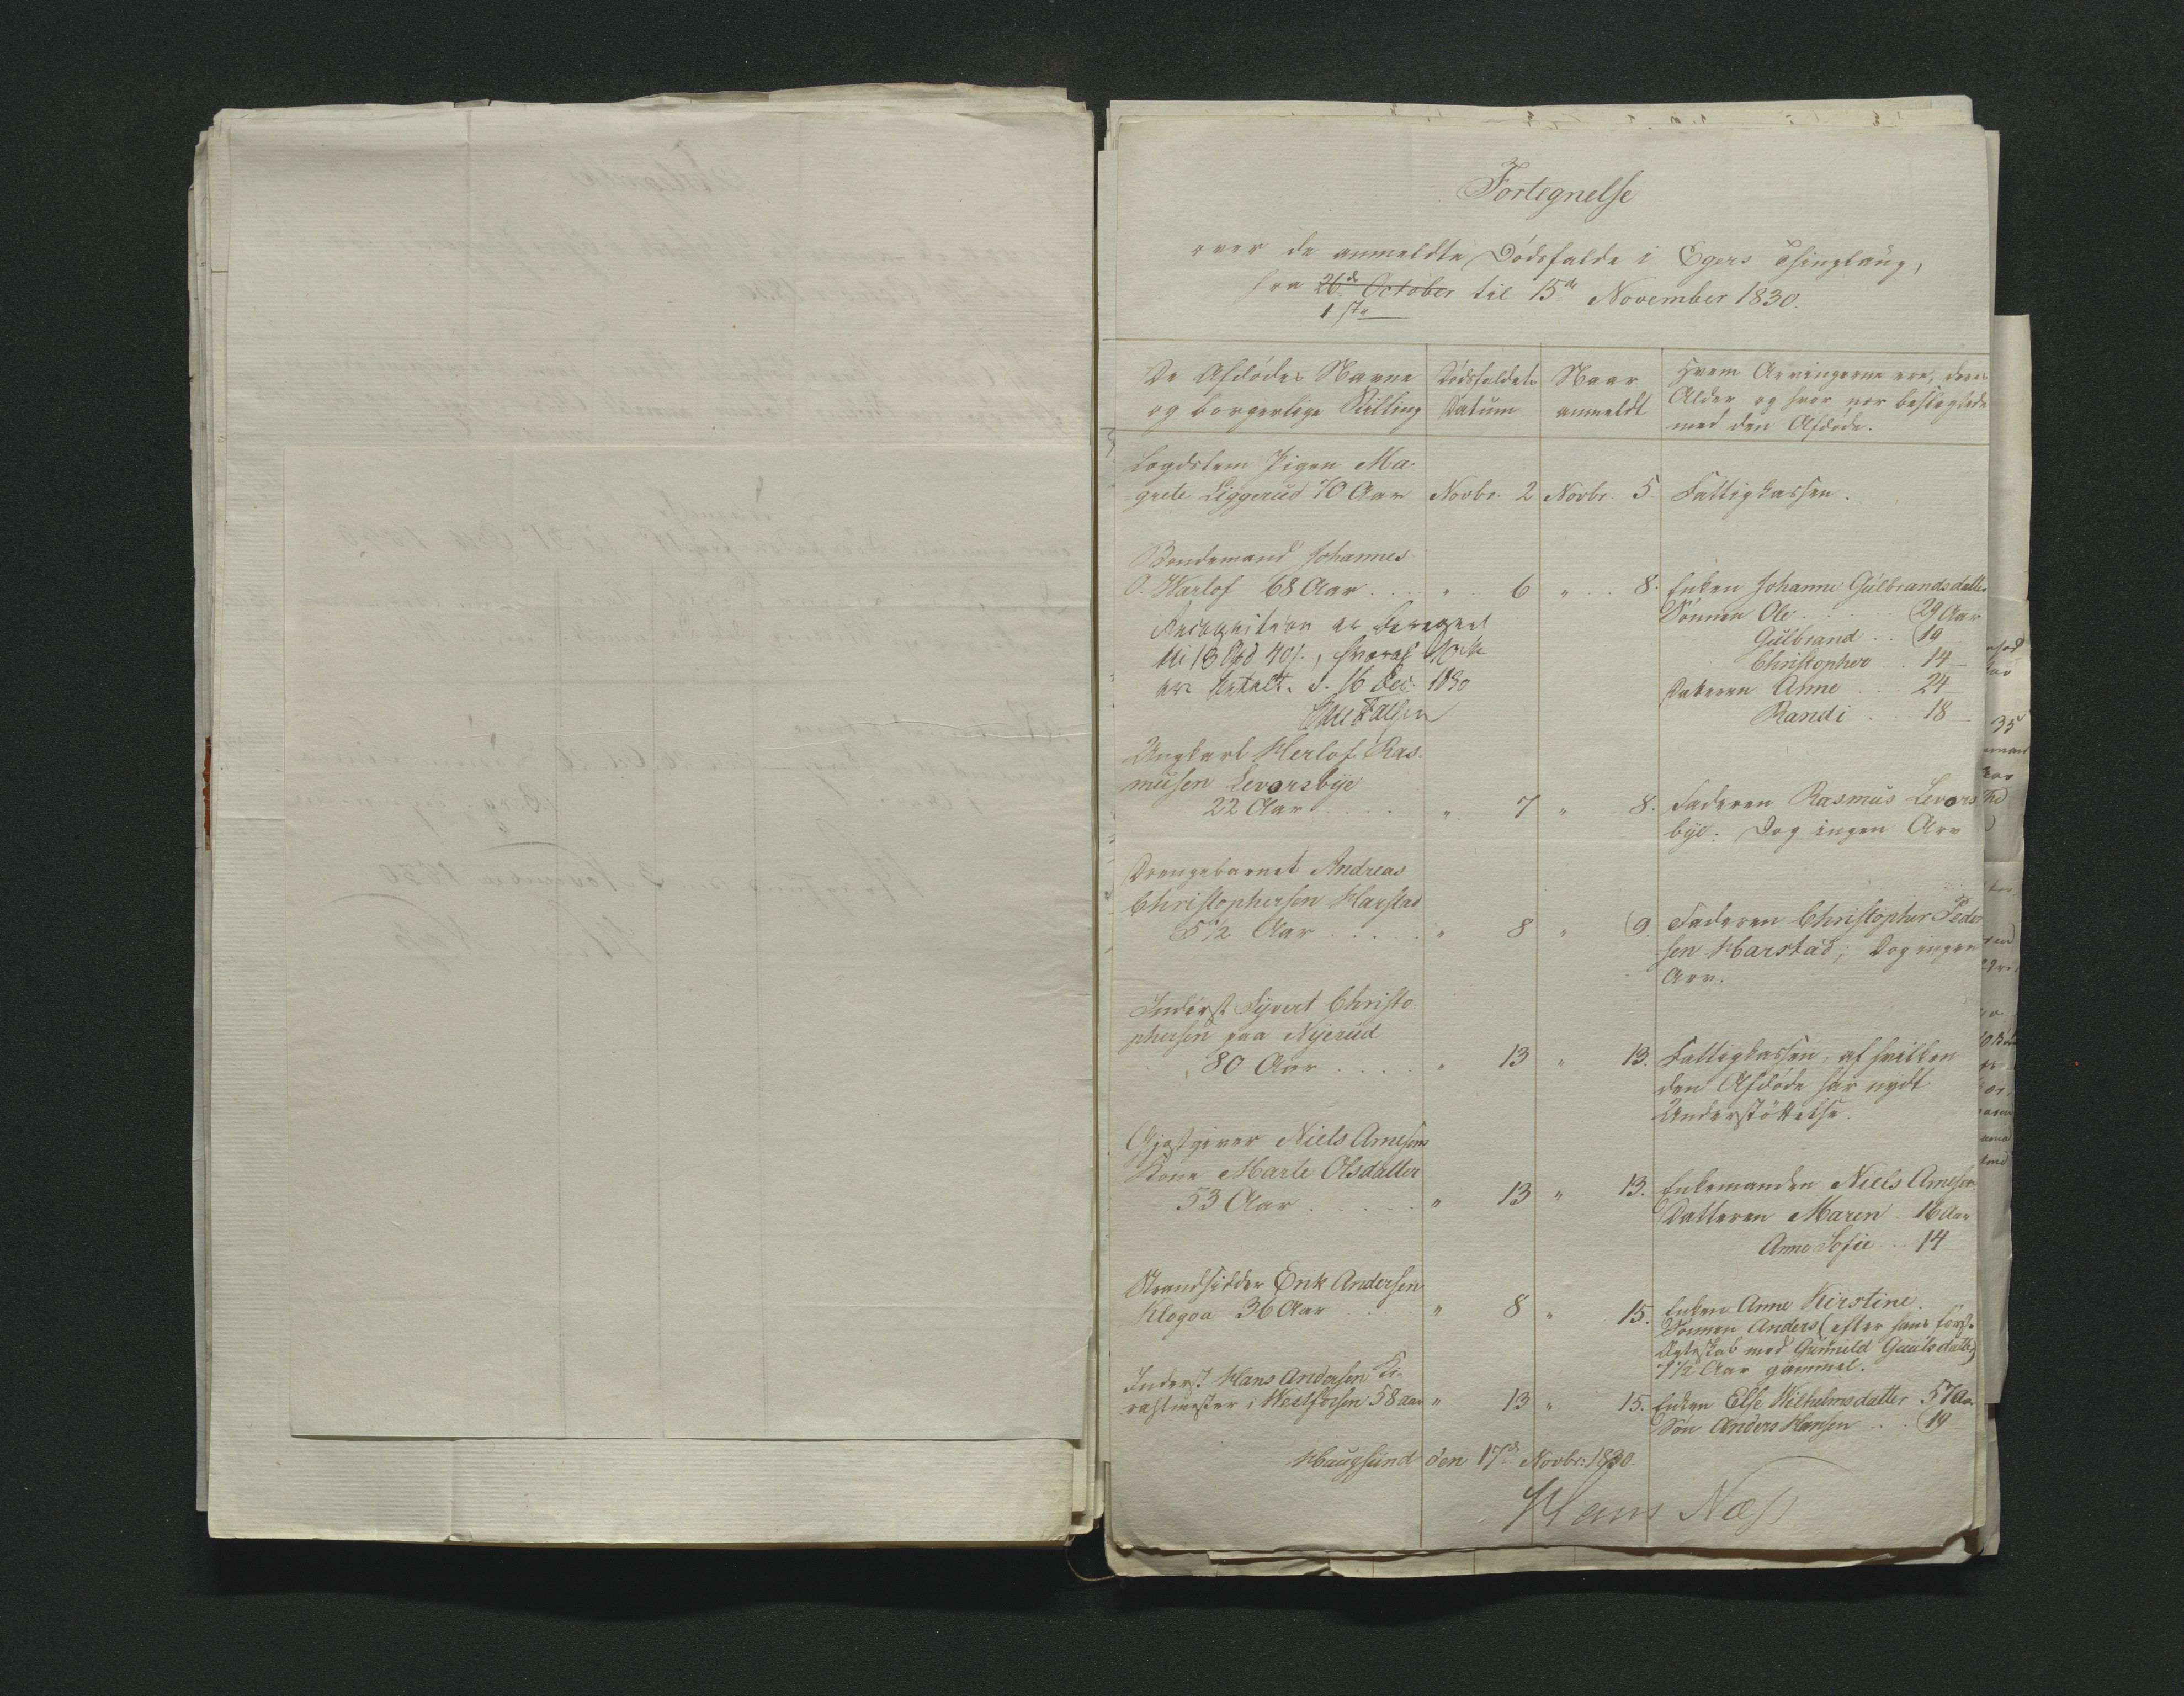 Fortegnelse
over de anmeldte Dødsfalde i Egers Thinglaug,
fra 26de October til 15de November 1830.
1ste
De Afdødes Navne
og borgerlige Stilling
Dødsfaldets
Datum
Naar
anmeldt
Hvem Arvingerne ere, deres
Alder og hvor nær beslægtede
med den Afdøde.
Lægdslem Pigen Ma-
grete Liggerud 70 Aar Novbr. 2 Novbr. 5. Fattigkassen.
Bondemand Johannes
O. Warlof 68 Aar . . . " 6 " . . 8. Enken Johanne Gulbrandsdatter
Sønnen Ole . . . 29 Aar
Gulbrand . . 19
Christopher . . 14 –
Datteren Anne . . . 24 –
Randi . . . 18 –
Recognition er beregnet
til 13 Spd 40 s., hvoraf
er betalt. d. 16 Dec. 1830
Ungkarl Herlof Ras-
musen Levorsbye
22 Aar . . . . " 7 " 8. Faderen Rasmus Levors
bye. Dog ingen Arv
Drengebarnet Andreas
Christophersen Harstad
5 1/2 Aar . . . . " 8 " 9. Faderen Christopher Peder
sen Harstad; Dog ingen
Arv.
Inderst Syvert Christo
phersen paa Nyerud
80 Aar . . . . " 13 " 13. Fattigkassen, af hvilken
den Afdøde har nydt
Understøttelse.
Gjæstgiver Niels Arnesens
Kone Marte Olsdatter
53 Aar . . . . . " 13 " 13. Enkemanden Niels Arnesen
Datteren Maren . 16 Aar
Anne Sofie . . 14 –
Strandsidder Erik Andersen
Klogoa 36 Aar . . . " 8 " 15. Enken Anne Kirstine.
Sønnen Anders (efter hans første
Ægteskab med Gunnild Guulsdatter)
7 1/2 Aar gammel.
Inderst Hans Andersen
i Westfossen 58 Aar " 13 " 15. Enken Else Wilhelmsdatter 57 Aar
Søn Anders Hansen . . . 19 –
Haugsund den 17de Novbr: 1830.
Hans Næss